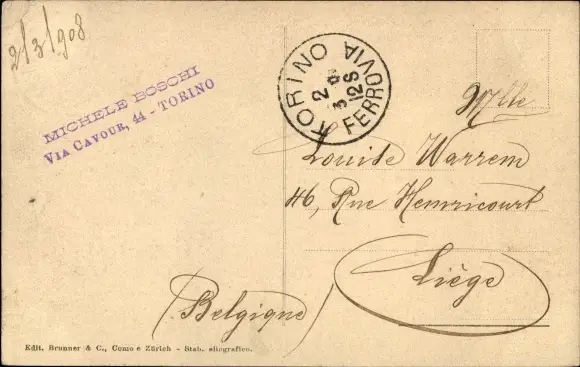 2/3/908
MICHELE BOSCHI
VIA CAVOUR, 44 - TORINO
TORINO FERROVIA
2
3
12S
Mlle
Louise Warrem
46, Rue Hemricourt
Liège
(Belgique)
Edit. Brunner & C., Como e Zürich - Stab. eliografico.